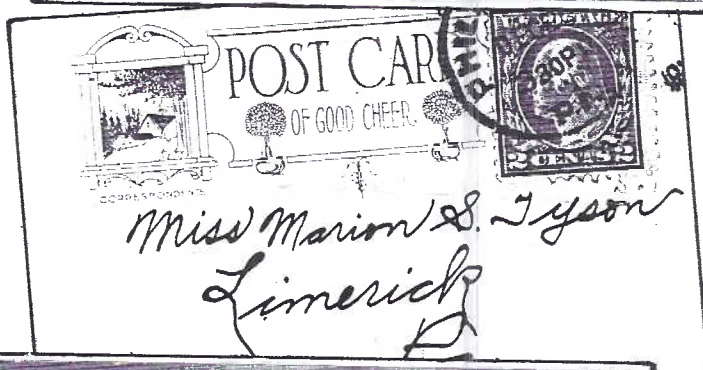 POST CAR
OF GOOD CHEER.
CORRESPONDENTS
PHIL
930P
PA.
2 CENTS 2
Miss Marion S. Tyson
Limerick